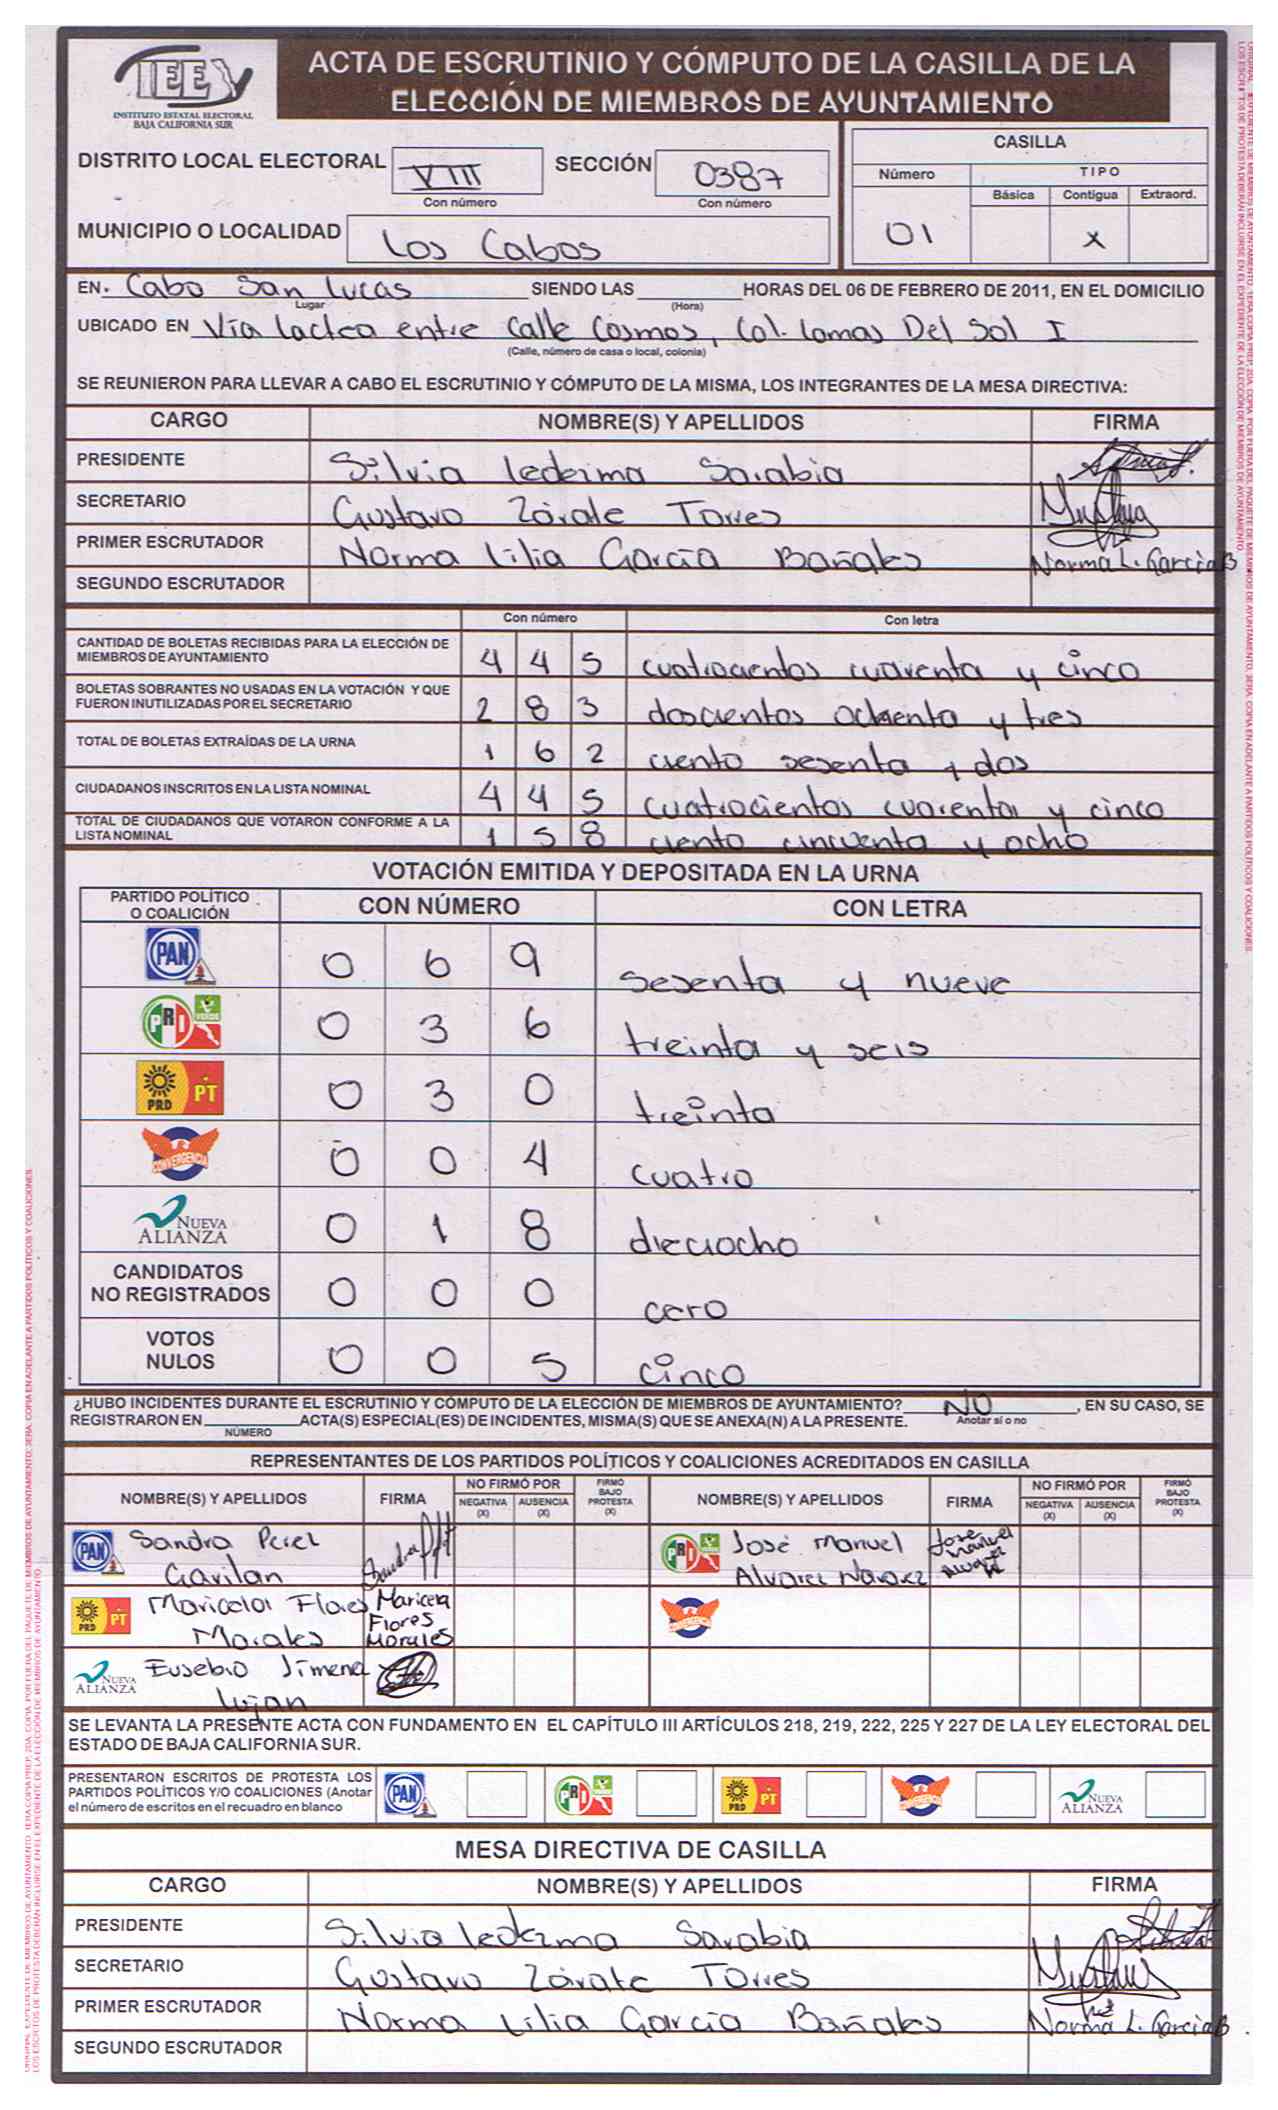 IEE
INSTITUTO ESTATAL ELECTORAL
BAJA CALIFORNIA SUR
ACTA DE ESCRUTINIO Y CÓMPUTO DE LA CASILLA DE LA
ELECCIÓN DE MIEMBROS DE AYUNTAMIENTO
DISTRITO LOCAL ELECTORAL VIII SECCIÓN 0387
Con número Con número
MUNICIPIO O LOCALIDAD Los Cabos
CASILLA
Número TIPO
Básica Contigua Extraord.
01 X
EN. Cabo San Lucas SIENDO LAS HORAS DEL 06 DE FEBRERO DE 2011, EN EL DOMICILIO
Lugar (Hora)
UBICADO EN Vía lactea entre Calle Cosmos, Col. Lomas Del Sol I
(Calle, número de casa o local, colonia)
SE REUNIERON PARA LLEVAR A CABO EL ESCRUTINIO Y CÓMPUTO DE LA MISMA, LOS INTEGRANTES DE LA MESA DIRECTIVA:
CARGO NOMBRE(S) Y APELLIDOS FIRMA
PRESIDENTE Silvia Ledezma Sarabia
SECRETARIO Gustavo Zárate Torres
PRIMER ESCRUTADOR Norma Lilia García Bañales Norma L. García B
SEGUNDO ESCRUTADOR
Con número Con letra
CANTIDAD DE BOLETAS RECIBIDAS PARA LA ELECCIÓN DE
MIEMBROS DE AYUNTAMIENTO 4 4 5 cuatrocientos cuarenta y cinco
BOLETAS SOBRANTES NO USADAS EN LA VOTACIÓN Y QUE
FUERON INUTILIZADAS POR EL SECRETARIO 2 8 3 doscientos ochenta y tres
TOTAL DE BOLETAS EXTRAÍDAS DE LA URNA 1 6 2 ciento sesenta y dos
CIUDADANOS INSCRITOS EN LA LISTA NOMINAL 4 4 5 cuatrocientos cuarenta y cinco
TOTAL DE CIUDADANOS QUE VOTARON CONFORME A LA
LISTA NOMINAL 1 5 8 ciento cincuenta y ocho
VOTACIÓN EMITIDA Y DEPOSITADA EN LA URNA
PARTIDO POLÍTICO
O COALICIÓN CON NÚMERO CON LETRA
PAN 0 6 9 sesenta y nueve
PRI VERDE 0 3 6 treinta y seis
PRD PT 0 3 0 treinta
CONVERGENCIA 0 0 4 cuatro
NUEVA
ALIANZA 0 1 8 dieciocho
CANDIDATOS
NO REGISTRADOS 0 0 0 cero
VOTOS
NULOS 0 0 5 cinco
¿HUBO INCIDENTES DURANTE EL ESCRUTINIO Y CÓMPUTO DE LA ELECCIÓN DE MIEMBROS DE AYUNTAMIENTO? NO , EN SU CASO, SE
REGISTRARON EN ACTA(S) ESPECIAL(ES) DE INCIDENTES, MISMA(S) QUE SE ANEXA(N) A LA PRESENTE. Anotar sí o no
NÚMERO
REPRESENTANTES DE LOS PARTIDOS POLÍTICOS Y COALICIONES ACREDITADOS EN CASILLA
NOMBRE(S) Y APELLIDOS FIRMA NO FIRMÓ POR NEGATIVA (X) AUSENCIA (X) FIRMÓ BAJO PROTESTA (X) NOMBRE(S) Y APELLIDOS FIRMA NO FIRMÓ POR NEGATIVA (X) AUSENCIA (X) FIRMÓ BAJO PROTESTA (X)
PAN Sandra Perez Gavilan PRI José Manuel Alvarez Narvaez
PRD PT Maricela Flores Morales Maricela Flores Morales CONVERGENCIA
NUEVA ALIANZA Eusebio Jimenez Lujan
SE LEVANTA LA PRESENTE ACTA CON FUNDAMENTO EN EL CAPÍTULO III ARTÍCULOS 218, 219, 222, 225 Y 227 DE LA LEY ELECTORAL DEL
ESTADO DE BAJA CALIFORNIA SUR.
PRESENTARON ESCRITOS DE PROTESTA LOS
PARTIDOS POLÍTICOS Y/O COALICIONES (Anotar
el número de escritos en el recuadro en blanco
PAN PRI PRD PT CONVERGENCIA NUEVA ALIANZA
MESA DIRECTIVA DE CASILLA
CARGO NOMBRE(S) Y APELLIDOS FIRMA
PRESIDENTE Silvia Ledezma Sarabia
SECRETARIO Gustavo Zárate Torres
PRIMER ESCRUTADOR Norma Lilia García Bañales Norma L. García B.
SEGUNDO ESCRUTADOR